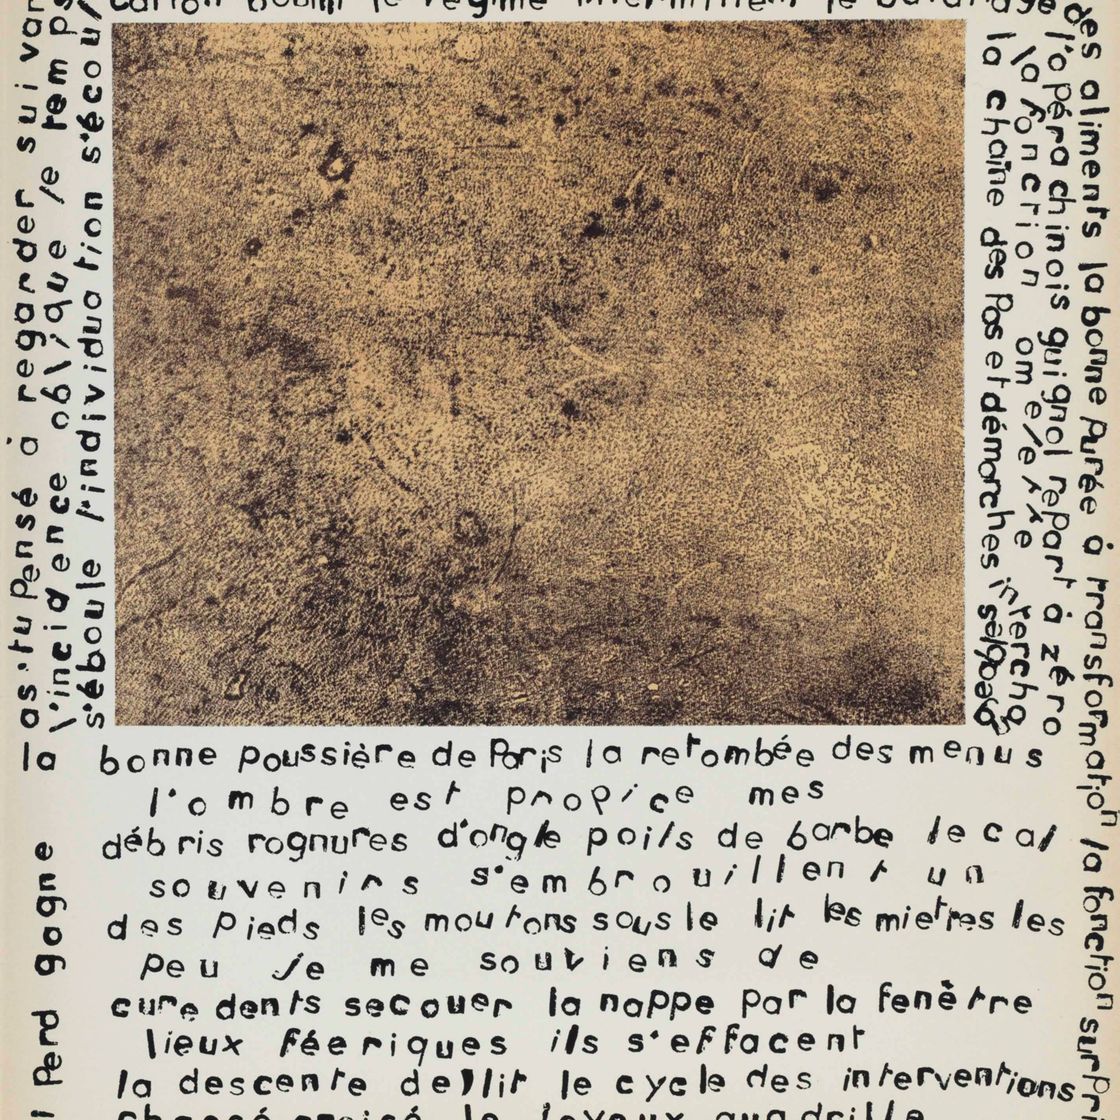 bouilli le régime intermittent le
des aliments la bonne purée à transformation la fonction
l'opéra chinois guignol repart à zéro
la fonction
la chaîne des pas et démarches
as-tu pensé à regarder
l'incidence que le temps
s'éboule l'individuation
la
perd gagne
bonne poussière de Paris la retombée des menus
l'ombre est propice mes
débris rognures d'ongle poils de barbe le cal
souvenirs s'embrouillent un
des pieds les moutons sous le lit les miettes les
peu je me souviens de
cure dents secouer la nappe par la fenêtre
lieux féeriques ils s'effacent
la descente de lit le cycle des interventions
le joyeux quadrille